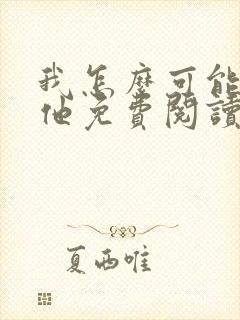 我怎麼可能
他免費閱讀
夏西唯